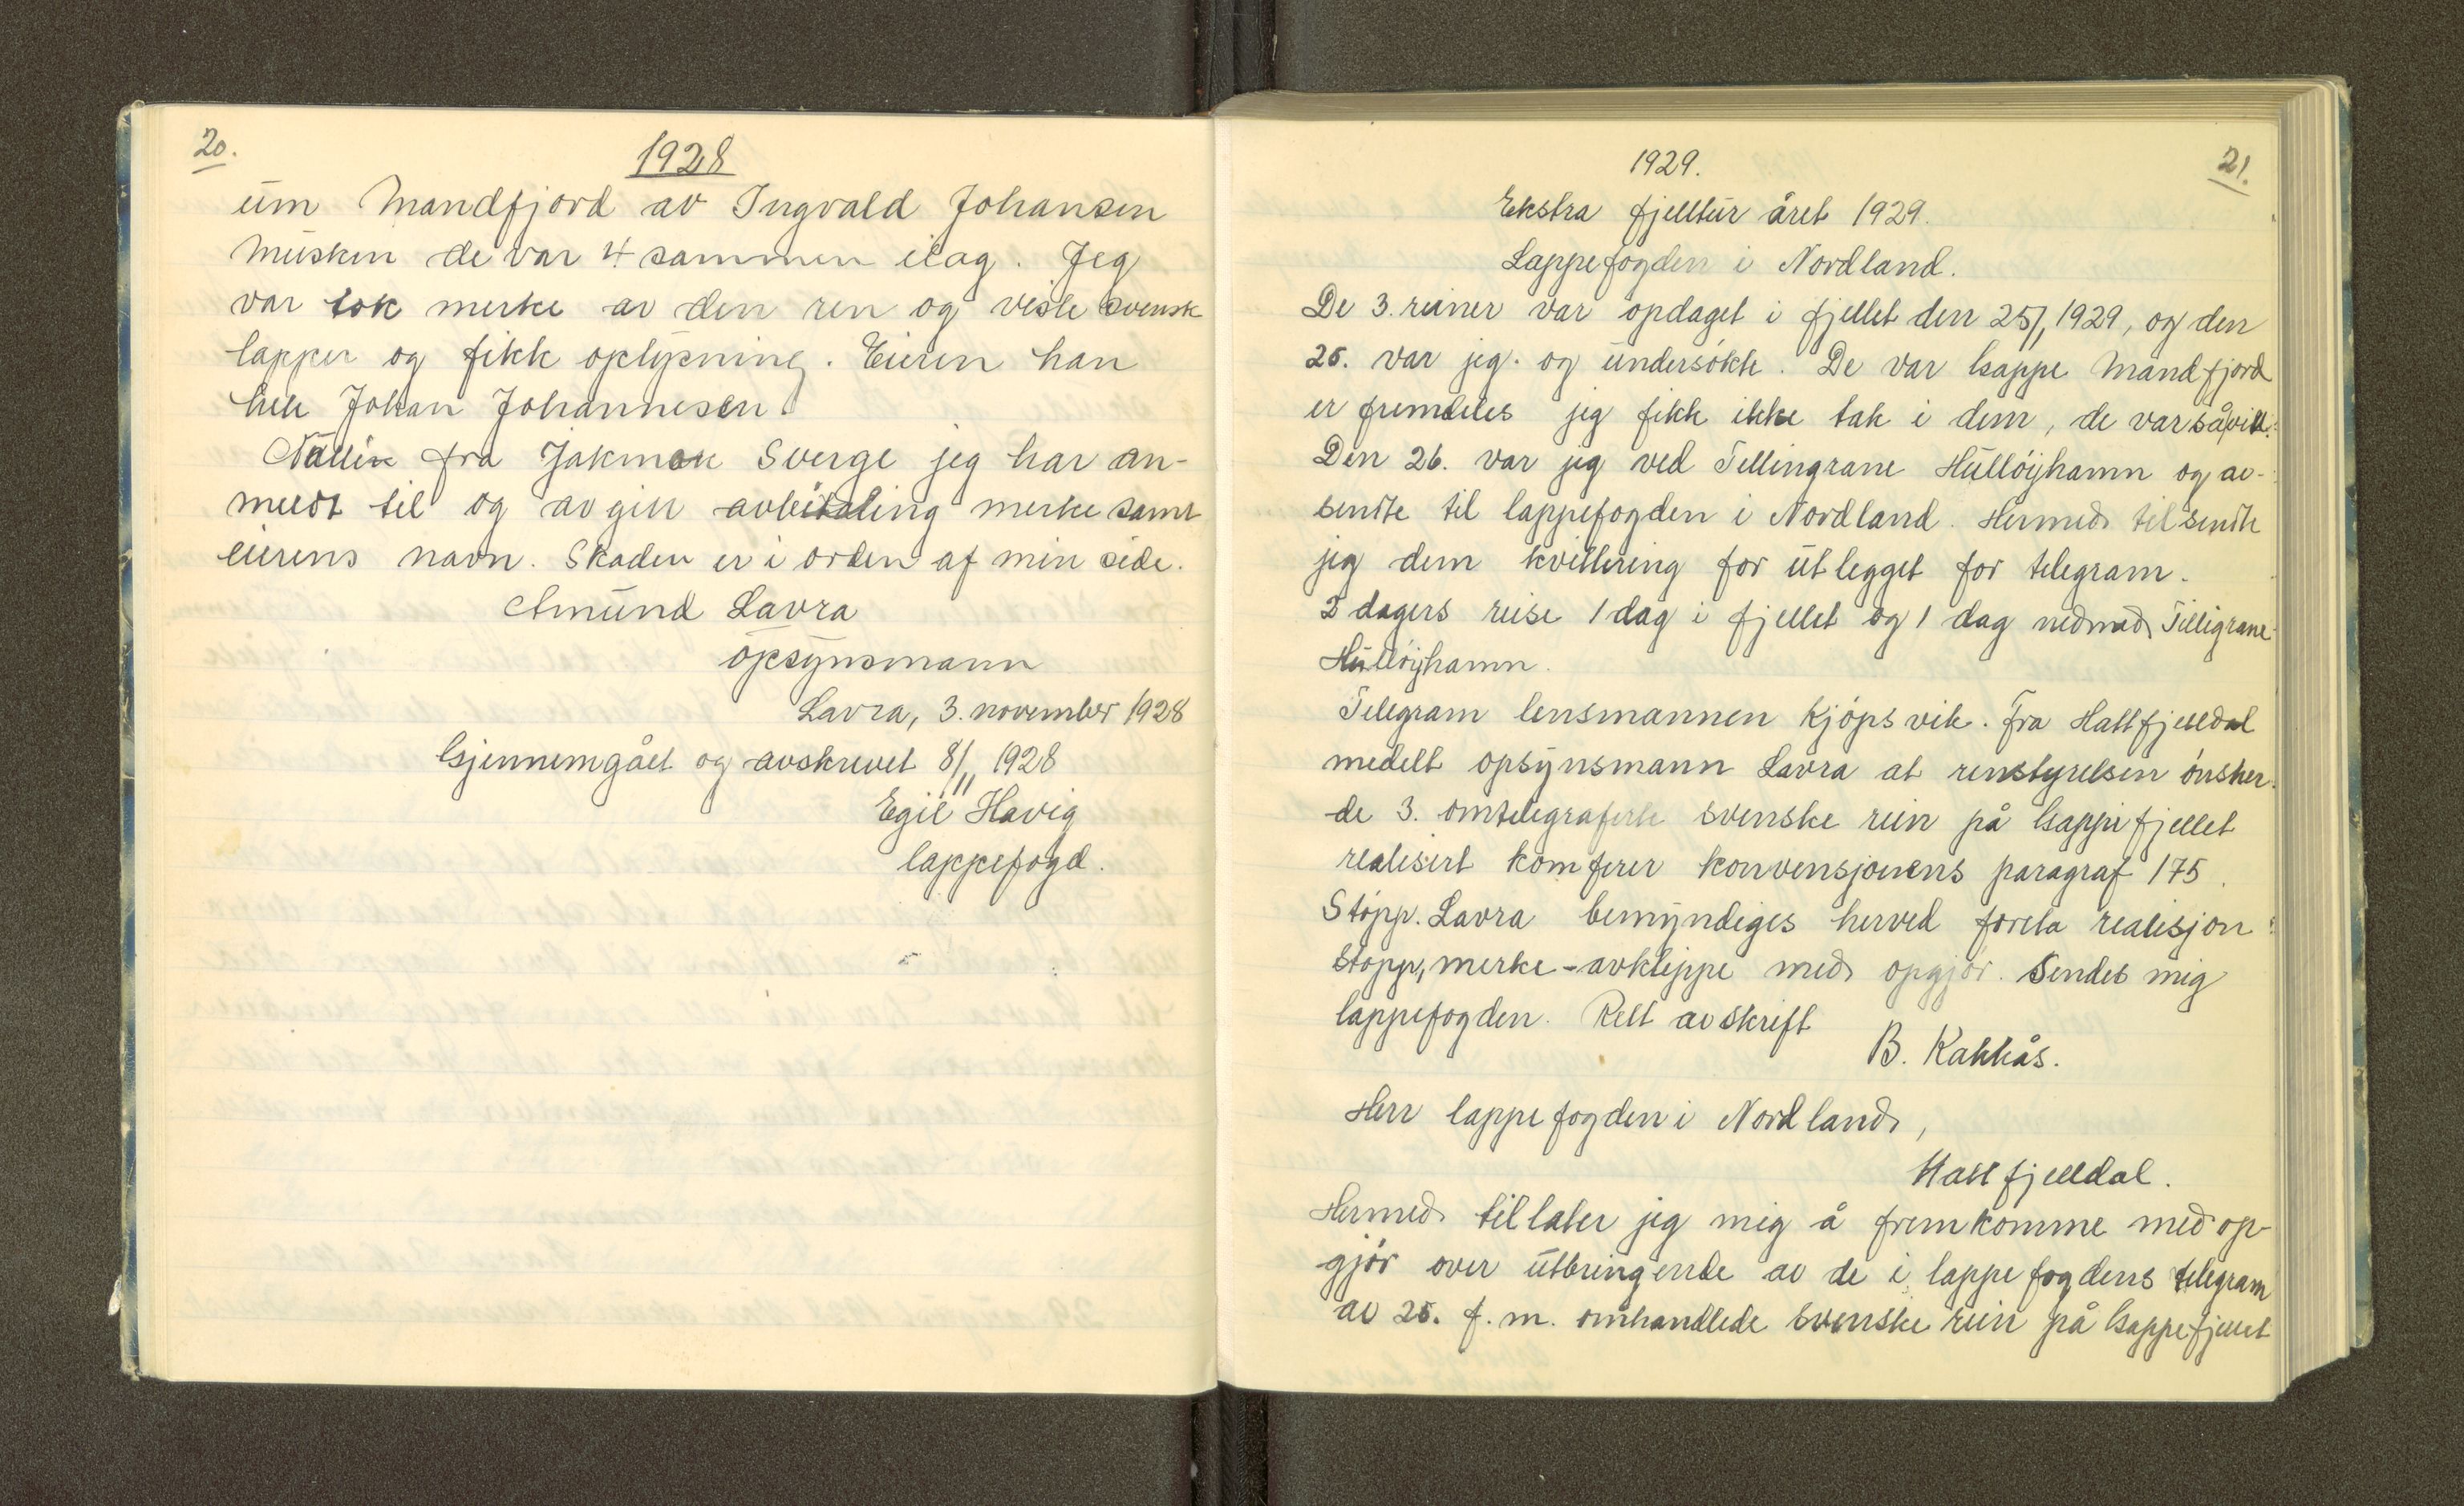 20.
1928
um Mandfjord av Ingvald Johansen
Musken de var 4 sammen ilag. Jeg
var tok merke av den ren og viste svensk
lapper og fikk oplysning. Eieren han
heter Johan Johannesen
Nallik fra Jakmok Sverge jeg har an-
meldt til og av gitt avbetaling merke samt
eierens navn. Skaden er i orden af min side.
Amund Lavra
opsynsmann
Lavra, 3. november 1928
Gjennemgått og avskrevet 8/11 1928
Egil Havig
lappefogd.
21.
1929.
Ekstra fjelltur året 1929.
Lappefogden i Nordland.
De 3. reiner var opdaget i fjellet den 25/1 1929, og den
25. var jeg og undersøkte. De var Gappe Mandfjord
er fremdeles jeg fikk ikke tak i dem, de var så vill.
Den 26. var jeg ved Tellingrane Hulløyhamn og av-
sendte til lappefogden i Nordland. Hermed tilsendte
jeg dem kvittering for utlegget for telegram.
2 dagers reise 1 dag i fjellet og 1 dag nedmed Tilligrane
Hulløyhamn.
Telegram lensmannen Kjøpsvik. Fra Hattfjelldal
medelt opsynsmann Lavra at renstyrelsen ønsker
de 3. omtelegraferte svenske rein på Gappefjellet
realisert komferer konvensjonens paragraf 175.
Stopp. Lavra bemyndiges herved foreta realisjon
stopp, merke-avklippe med opgjør. Sendes mig
lappefogden. Rett avskrift
B. Kakkås.
Herr lappefogden i Nordland,
Hattfjelldal.
Hermed tillater jeg mig å fremkomme med op-
gjør over utbringende av de i lappefogdens telegram
av 25. f.m. omhandlede svenske rein på Gappefjellet